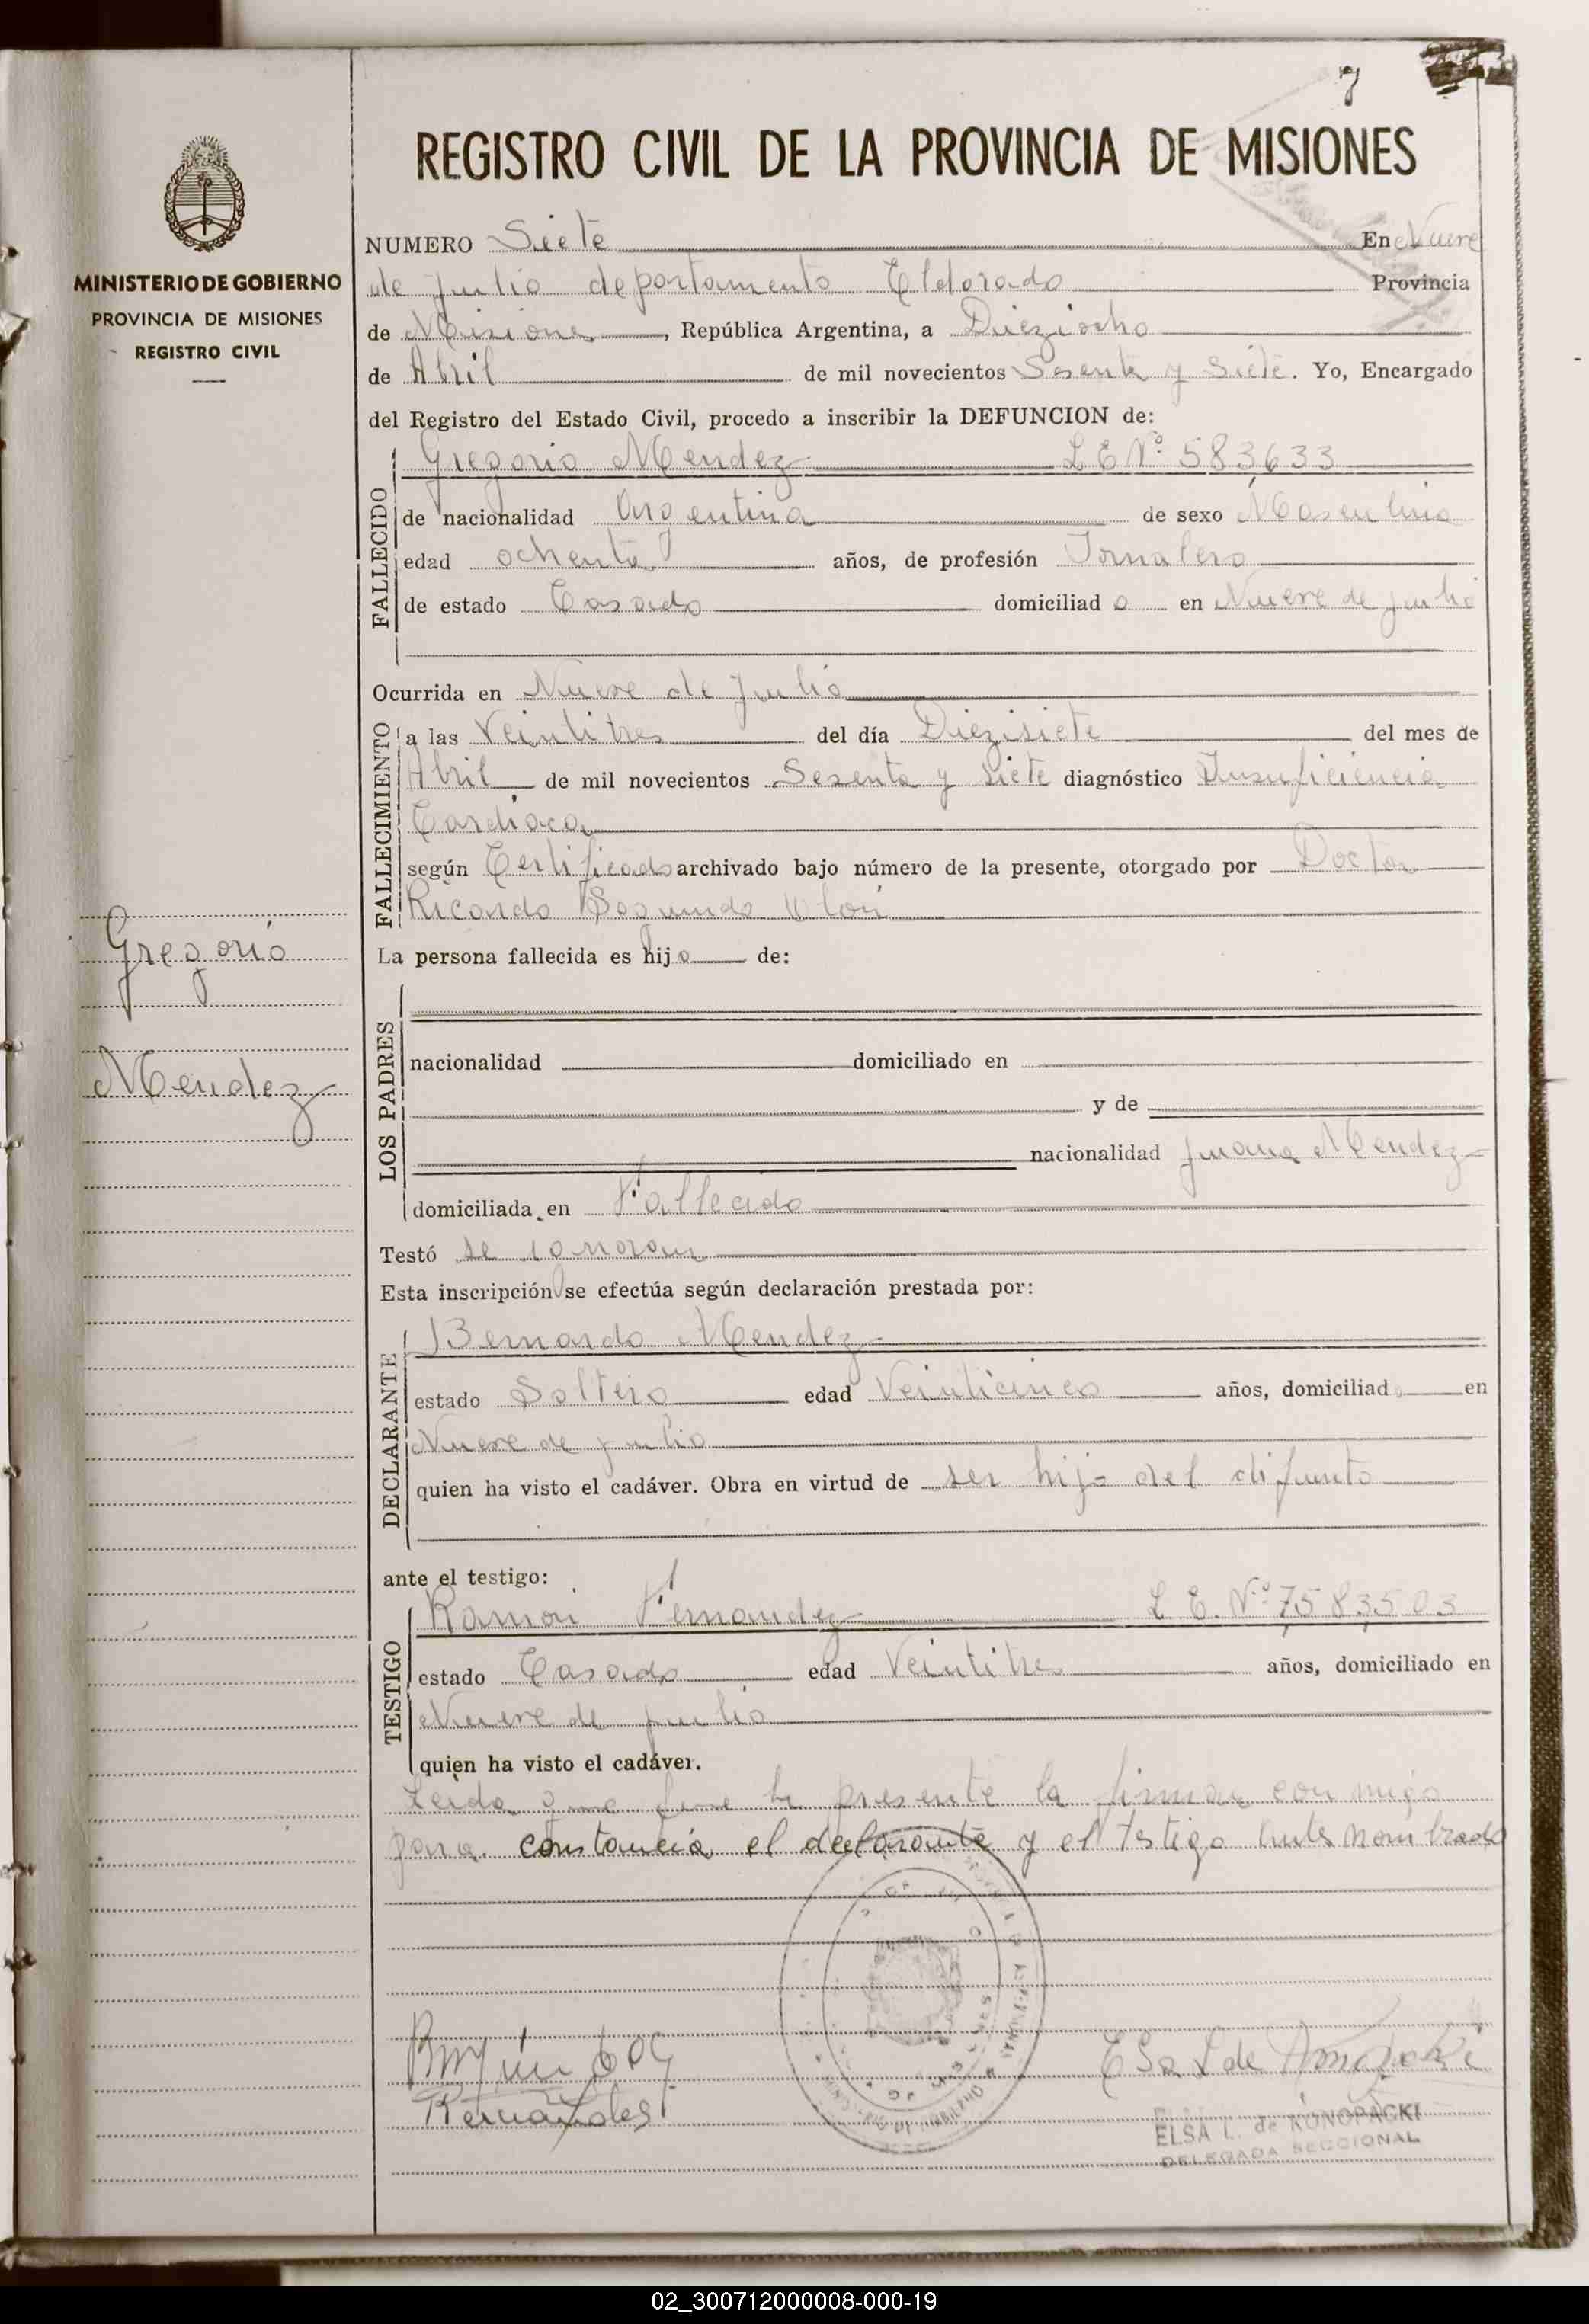 7
REGISTRO CIVIL DE LA PROVINCIA DE MISIONES
MINISTERIO DE GOBIERNO
PROVINCIA DE MISIONES
REGISTRO CIVIL
NUMERO Siete En Nueve
de Julio departamento Eldorado Provincia
de Misiones, República Argentina, a Dieziocho
de Abril de mil novecientos Sesenta y Siete. Yo, Encargado
del Registro del Estado Civil, procedo a inscribir la DEFUNCION de:
FALLECIDO
Gregorio Mendez L E Nº 583,633
de nacionalidad Argentina de sexo Masculino
edad ochenta años, de profesión Jornalero
de estado Casado domiciliado en Nueve de Julio
Ocurrida en Nueve de Julio
FALLECIMIENTO
a las Veintitres del día Diezisiete del mes de
Abril de mil novecientos Sesenta y Siete diagnóstico Insuficiencia
Cardiaca
según Certificado archivado bajo número de la presente, otorgado por Doctor
Ricardo Segundo
Gregorio
Mendez
La persona fallecida es hijo de:
LOS PADRES
nacionalidad domiciliado en
y de
nacionalidad Juana Mendez
domiciliada en Fallecido
Testó se ignoran
Esta inscripción se efectúa según declaración prestada por:
DECLARANTE
Bernardo Mendez
estado Soltero edad Veinticinco años, domiciliado en
Nueve de Julio
quien ha visto el cadáver. Obra en virtud de ser hijo del difunto
ante el testigo:
TESTIGO
Ramón Fernandez L E. Nº 7,583,503
estado Casado edad Veintitres años, domiciliado en
Nueve de Julio
quien ha visto el cadáver.
Leida que fue la presente la firman conmigo
para constancia el declarante y el testigo antes nombrado
ELSA L. de KONOPACKI
DELEGADA SECCIONAL
02_300712000008-000-19